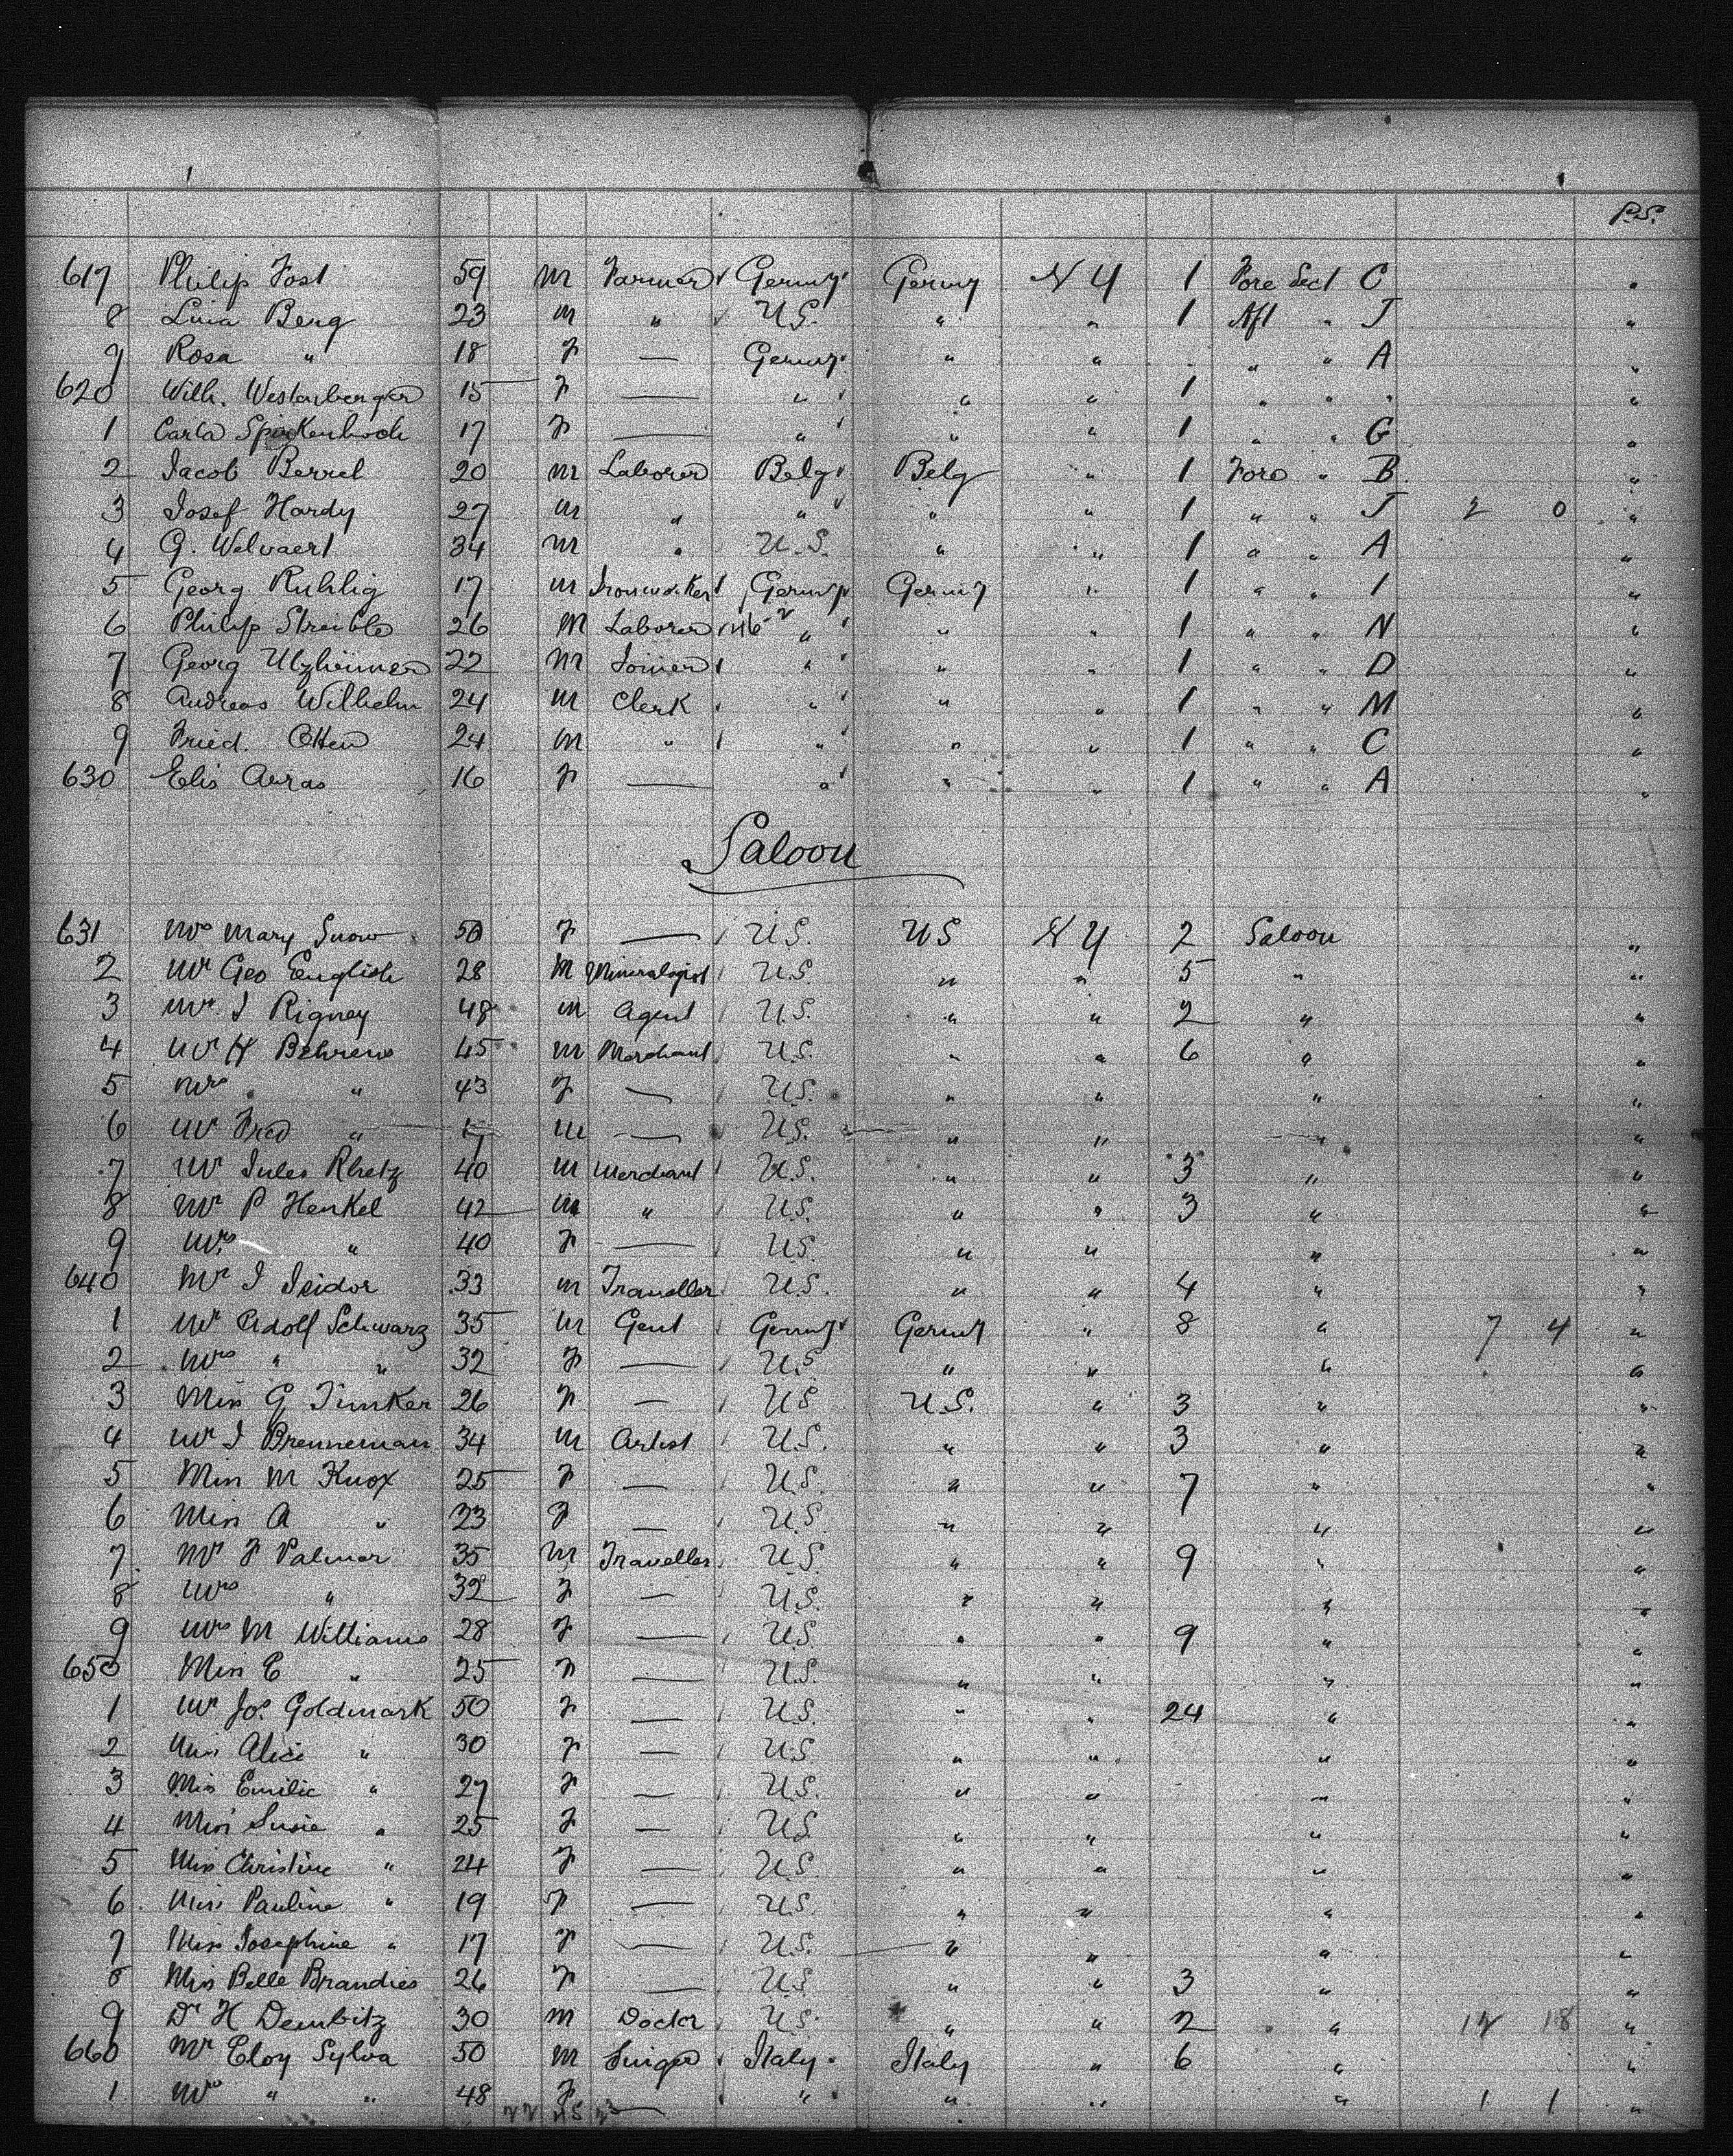 P.S.
617 Philip Fost 59 m Farmer Germy Germy N Y 1 Fore Sect C "
8 Lina Berg 23 m " U.S. " " 1 Aft " J "
9 Rosa " 18 f — Germy " " " " A "
620 Wilh. Westenberger 15 f — " " " 1 " " " "
1 Carla 17 f — " " " 1 " " G "
2 Jacob Berrel 20 m Laborer Belg Belg " 1 Fore " B "
3 Josef Hardy 27 m " " " " 1 " " J 2 0 "
4 G. Welvaert 34 m " U.S. " " 1 " " A "
5 Georg Ruhlig 17 m Ironworker Germy Germy " 1 " " I "
6 Philip Streible 26 m Laborer " " " 1 " " N "
7 Georg Utzheimer 22 m Joiner " " " 1 " " D "
8 Andreas Wilhelm 24 m Clerk " " " 1 " " M "
9 Fried. Otten 24 m " " " " 1 " " C "
630 Elis Arras 16 f — " " " 1 " " A "
Saloon
631 Mrs Mary Snow 50 f — U.S. US N Y 2 Saloon "
2 Mr Geo English 28 m Mineralogist U.S. " " 5 " "
3 Mr. J Rigney 48 m Agent U.S. " " 2 " "
4 Mr H Behrens 45 m Merchant U.S. " " 6 " "
5 Mrs " " 43 f — U.S. " " " "
6 Mr Fred " m — U.S. " " " "
7 Mr Jules Rhetz 40 m Merchant U.S. " " 3 " "
8 Mr P Henkel 42 m " U.S. " " 3 " "
9 Mrs " 40 f — U.S. " " " "
640 Mr I Isidor 33 m Traveller U.S. " " 4 " "
1 Mr Adolf Schwarz 35 m Gent Germy Germy " 8 " 7 4 "
2 Mrs " " 32 f — U.S. " " " "
3 Miss G Timker 26 f — US U.S. " 3 " "
4 Mr J Brenneman 34 m Artist U.S. " " 3 " "
5 Miss M Knox 25 f — U.S. " " 7 " "
6 Miss A " 23 f — U.S. " " " "
7 Mr F Palmer 35 m Traveller U.S. " " 9 " "
8 Mrs " 32 f — U.S. " " " "
9 Mrs M Williams 28 f — U.S. " " 9 " "
650 Miss E " 25 f — U.S. " " " "
1 Mr Jos. Goldmark 50 f — U.S. " " 24 " "
2 Miss Alice " 30 f — U.S. " " " "
3 Miss Emilie " 27 f — U.S. " " " "
4 Miss Susie " 25 f — U.S. " " " "
5 Miss Christine " 24 f — U.S. " " " "
6 Miss Pauline " 19 f — U.S. " " " "
7 Miss Josephine " 17 f — U.S. " " " "
8 Miss Belle Brandies 26 f — U.S. " " 3 " "
9 Dr H Dembitz 30 m Doctor U.S. " " 2 " 18 "
660 Mr Eloy Sylva 50 m Singer Italy Italy " 6 " "
1 Mrs " " 48 f — " " " " 1 1 "